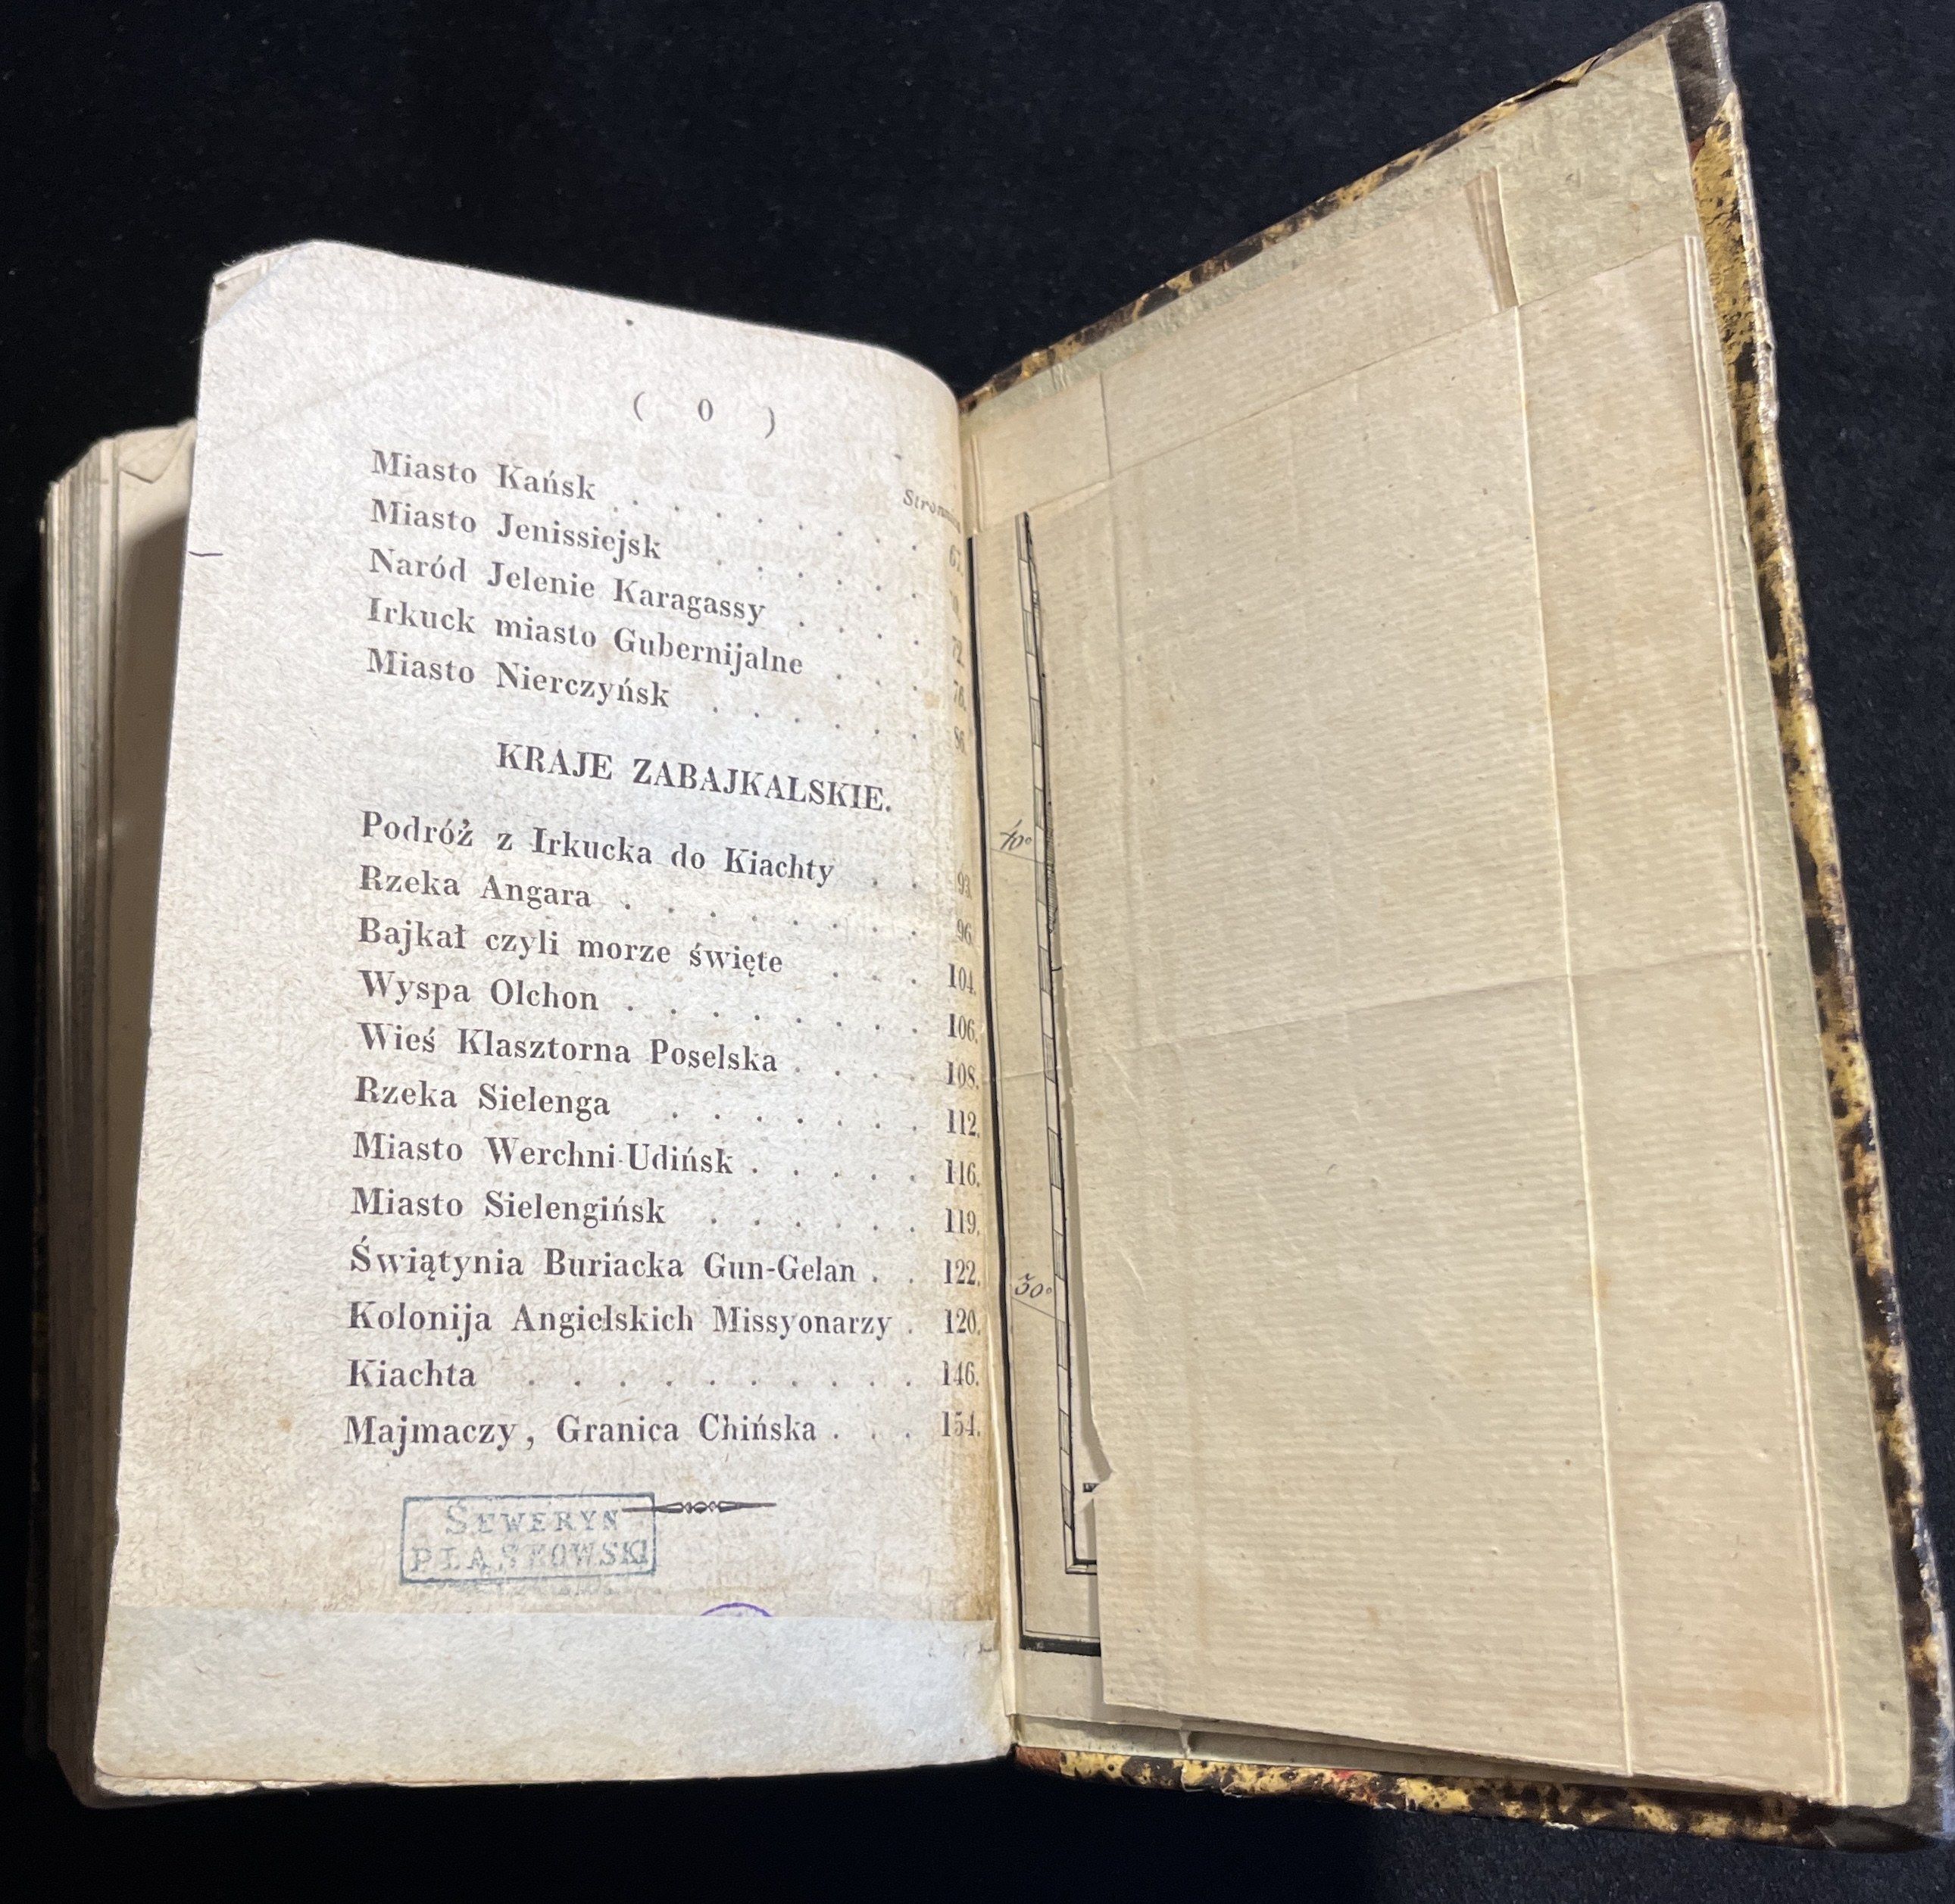 ( 0 )
Stronnica
Miasto Kańsk . . . . . . . 67.
Miasto Jenissiejsk . . . . .
Naród Jelenie Karagassy . . . . 72.
Irkuck miasto Gubernijalne . . . 76.
Miasto Nierczyńsk . . . . . 86.
KRAJE ZABAJKALSKIE.
Podróż z Irkucka do Kiachty . . 93.
Rzeka Angara . . . . . . . 96.
Bajkał czyli morze święte . . . 104.
Wyspa Olchon . . . . . . . 106.
Wieś Klasztorna Poselska . . . . 108.
Rzeka Sielenga . . . . . . 112.
Miasto Werchni-Udińsk . . . . . 116.
Miasto Sielengińsk . . . . . . 119.
Świątynia Buriacka Gun-Gelan . . 122.
Kolonija Angielskich Missyonarzy . 120.
Kiachta . . . . . . . . . . 146.
Majmaczy, Granica Chińska . . . 154.
SEWERYN
PŁASKOWSKI
30°